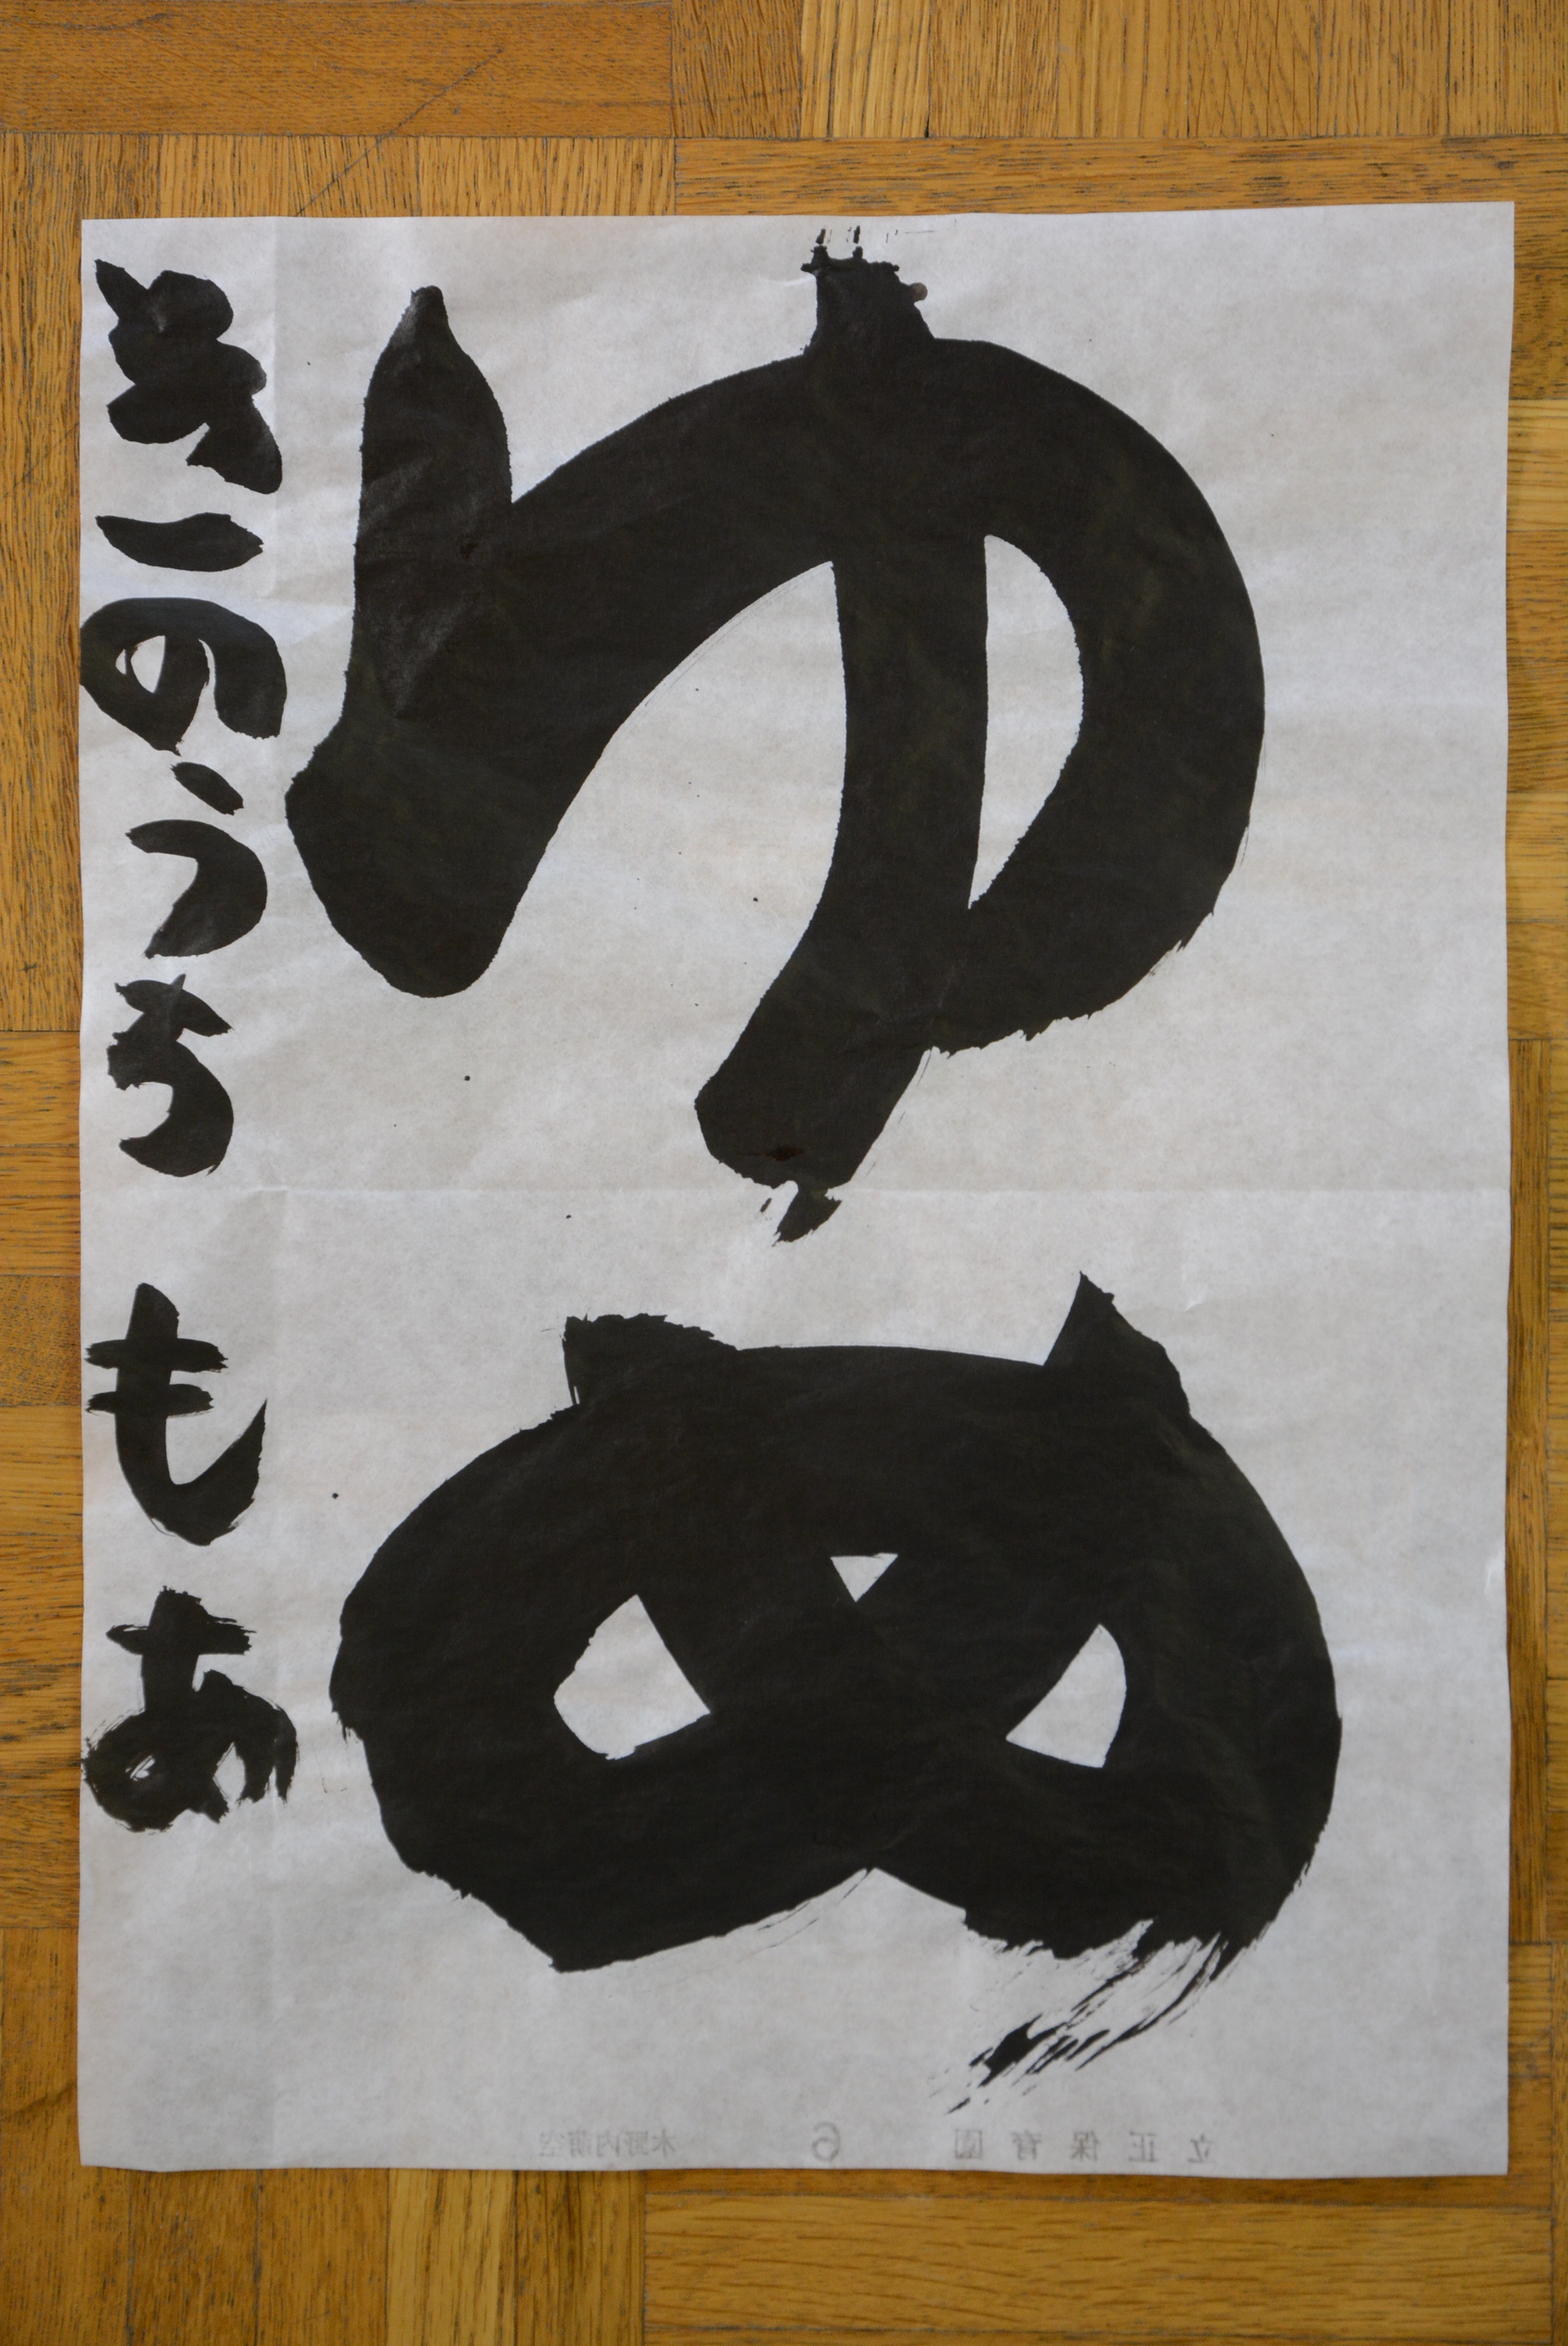 ゆめ
きのうち もあ
立正保育園 6 木野内萌空